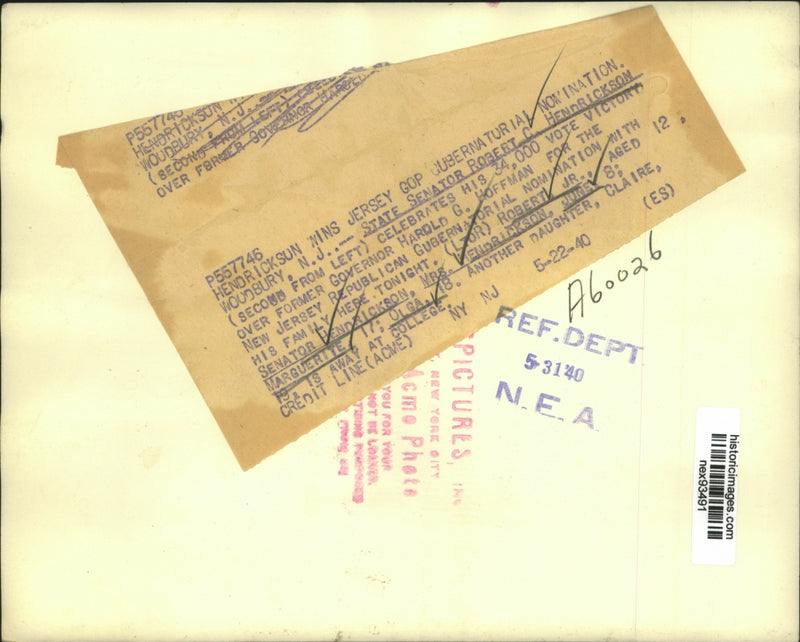 P557745
HENDRICKSON
WOODBURY, N.J.
(SECOND FROM LEFT)
OVER FORMER GOVERNOR HAROLD
P557746
HENDRICKSON WINS JERSEY GOP GUBERNATORIAL NOMINATION.
WOODBURY, N.J..-- STATE SENATOR ROBERT C. HENDRICKSON
(SECOND FROM LEFT) CELEBRATES HIS 34,000 VOTE VICTORY
OVER FORMER GOVERNOR HAROLD G. HOFFMAN FOR THE
NEW JERSEY REPUBLICAN GUBERNATORIAL NOMINATION WITH
HIS FAMILY HERE TONIGHT. (L TO R) ROBERT JR., AGED 12,
SENATOR HENDRICKSON, MRS. HENDRICKSON, JUNE 8;
MARGUERITE 17; OLGA ANOTHER DAUGHTER, CLAIRE,
IS AWAY AT COLLEGE.
CREDIT LINE(ACME) NY NJ 5-22-40 (ES)
A60026
REF. DEPT.
5-31 40
N.E.A.
PICTURES, INC
NEW YORK CITY
Acme Photo
YOU FOR YOUR
NOT BE LOANED,
historicimages.com
nex93491